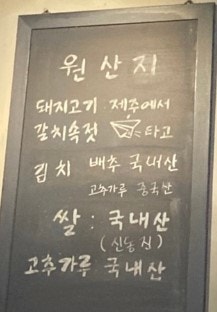 원산지
돼지고기 제주에서
갈치속젓 타고
김치 배추 국내산
고추가루 중국산
쌀 : 국내산
(신동진)
고추가루 국내산